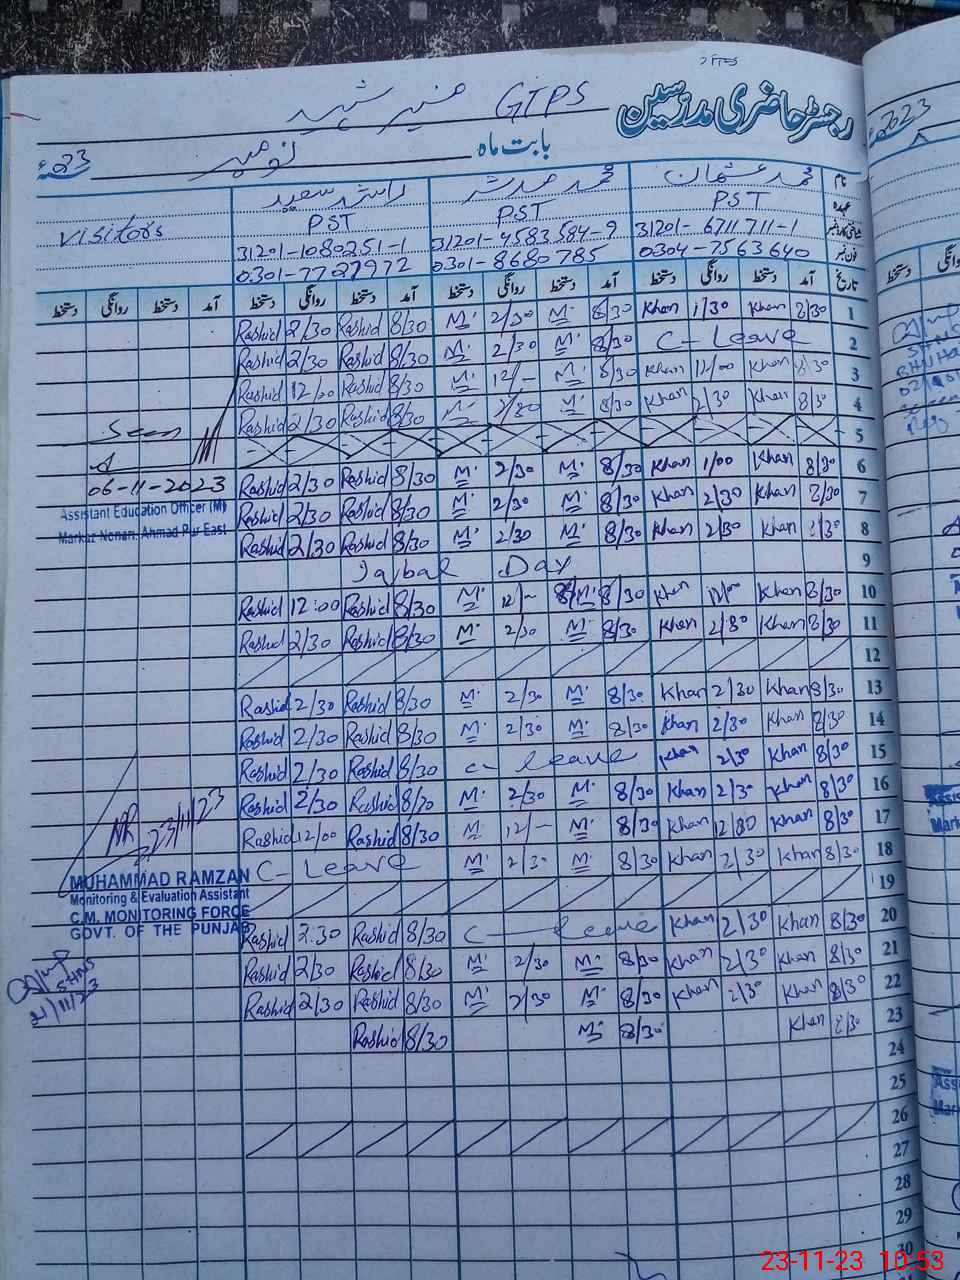 رجسٹر حاضری مدرسین GTPS
بابت ماہ نومبر 23ء
نام محمد عثمان محمد مدثر راشد سعید
عہدہ PST PST PST Visitors
شناختی کارڈ نمبر 31201-6711711-1 31201-4583584-9 31201-1080251-1
فون نمبر 0304-7563640 0301-8680785 0301-7727972
تاریخ آمد دستخط روانگی دستخط آمد دستخط روانگی دستخط آمد دستخط روانگی دستخط آمد دستخط روانگی دستخط
1 8/30 Khan 1/30 Khan 8/30 M. 2/30 M. 8/30 Rashid 2/30 Rashid
2 C- Leave 8/30 M. 2/30 M. 8/30 Rashid 2/30 Rashid
3 8/30 Khan 12/00 Khan 8/30 M. 12/- M. 8/30 Rashid 12/00 Rashid
4 8/30 Khan 2/30 Khan 8/30 M. 2/30 M. 8/30 Rashid 2/30 Rashid
5 Seen
6 8/30 Khan 1/00 Khan 8/30 M. 2/30 M. 8/30 Rashid 2/30 Rashid
06-11-2023
7 8/30 Khan 2/30 Khan 8/30 M. 2/30 M. 8/30 Rashid 2/30 Rashid
Assistant Education Officer (M)
8 8/30 Khan 2/30 Khan 8/30 M. 2/30 M. 8/30 Rashid 2/30 Rashid
Markaz Nonari, Ahmad Pur East
9 Iqbal Day
10 8/30 Khan 12/00 Khan 8/30 M. 12/- M. 8/30 Rashid 12:00 Rashid
11 8/30 Khan 2/30 Khan 8/30 M. 2/30 M. 8/30 Rashid 2/30 Rashid
12
13 8/30 Khan 2/30 Khan 8/30 M. 2/30 M. 8/30 Rashid 2/30 Rashid
14 8/30 Khan 2/30 Khan 8/30 M. 2/30 M. 8/30 Rashid 2/30 Rashid
15 8/30 Khan 2/30 Khan C- Leave 8/30 Rashid 2/30 Rashid
16 8/30 Khan 2/30 Khan 8/30 M. 2/30 M. 8/30 Rashid 2/30 Rashid
17 8/30 Khan 12/00 Khan 8/30 M. 12/- M. 8/30 Rashid 12/00 Rashid
23/11/23
18 8/30 Khan 2/30 Khan 8/30 M. 2/30 M. C- Leave
MUHAMMAD RAMZAN
19
Monitoring & Evaluation Assistant
C.M. MONITORING FORCE
GOVT. OF THE PUNJAB
20 8/30 Khan 2/30 Khan C- Leave 8/30 Rashid 2:30 Rashid
21 8/30 Khan 2/30 Khan 8/30 M. 2/30 M. 8/30 Rashid 2/30 Rashid
22 8/30 Khan 2/30 Khan 8/30 M. 2/30 M. 8/30 Rashid 2/30 Rashid
21/11/23
23 8/30 Khan 8/30 M. 8/30 Rashid
24
25
26
27
28
29
30
23-11-23 10:53